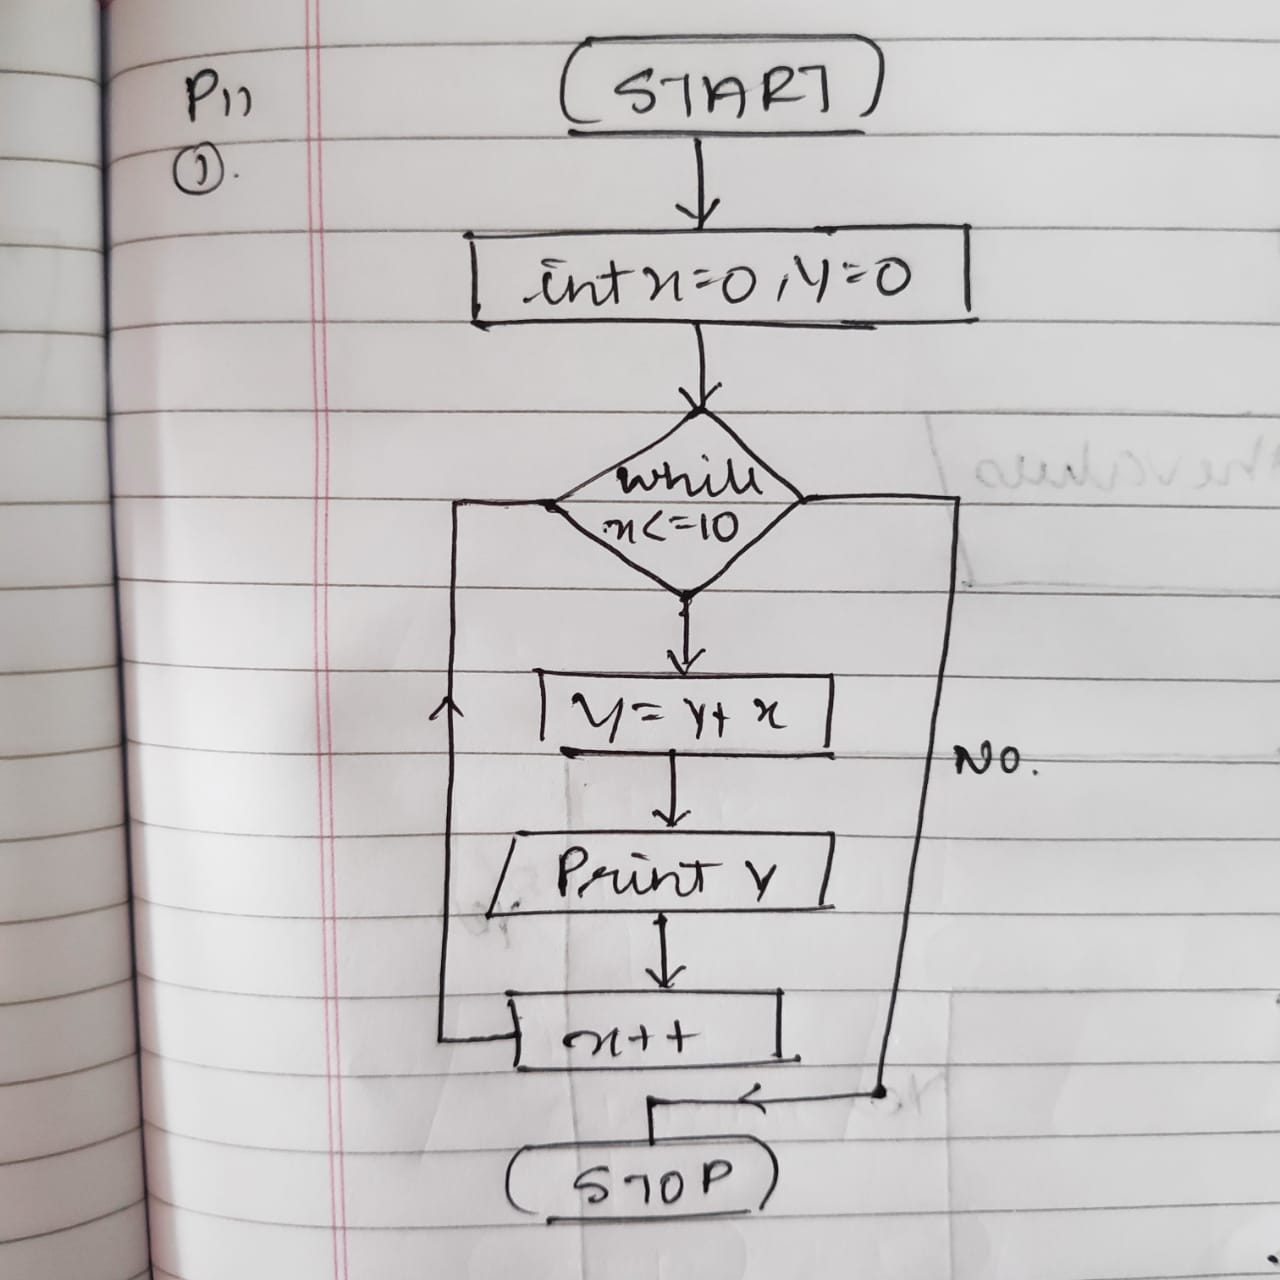 P11
①.
START
int x=0, y=0
while
x<=10
y= y+ x
NO.
Print y
x++
STOP